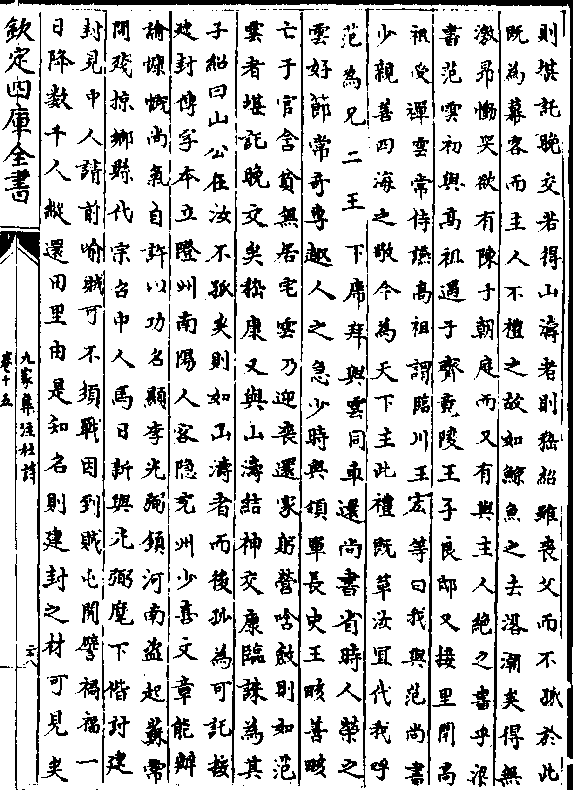 則堪託晚交若得山濤者則嵇紹雖喪父而不孤於此
既為幕客而主人不禮之故如鯨魚之去溟潮矣得無
激昂慟哭欲有陳于朝庭而又有與主人絶之書乎梁
書范雲初與高祖遇于齊竟陵王子良邸又接里閈高
祖受禪雲常侍讌高祖謂臨川王宏等曰我與范尚書
少親善四海之敬今為天下主此禮既革汝宜代我呼
范為兄二王下席拜與雲同車還尚書省時人榮之
雲好節尚奇專趣人之急少時與領軍長史王畡善畡
亡于官舍貧無居宅雲乃迎喪還家躬營唅斂則如范
雲者堪託晚交矣嵇康又與山濤結神交康臨誅為其
子紹曰山公在汝不孤矣則如山濤者而後孤為可託按
建封傳字本立鄧州南陽人客隱兗州少喜文章能辯
論慷慨尚氣自許以功名顯李光弼鎮河南盗起蘇常
間殘掠鄉縣代宗召中人馬日新與光弼麾下偕討建
封見中人請前喻賊可不須戰因到賊屯開譬禍福一
日降數千人縱還田里由是知名則建封之材可見矣
欽定四庫全書
九家集注杜詩
卷十五